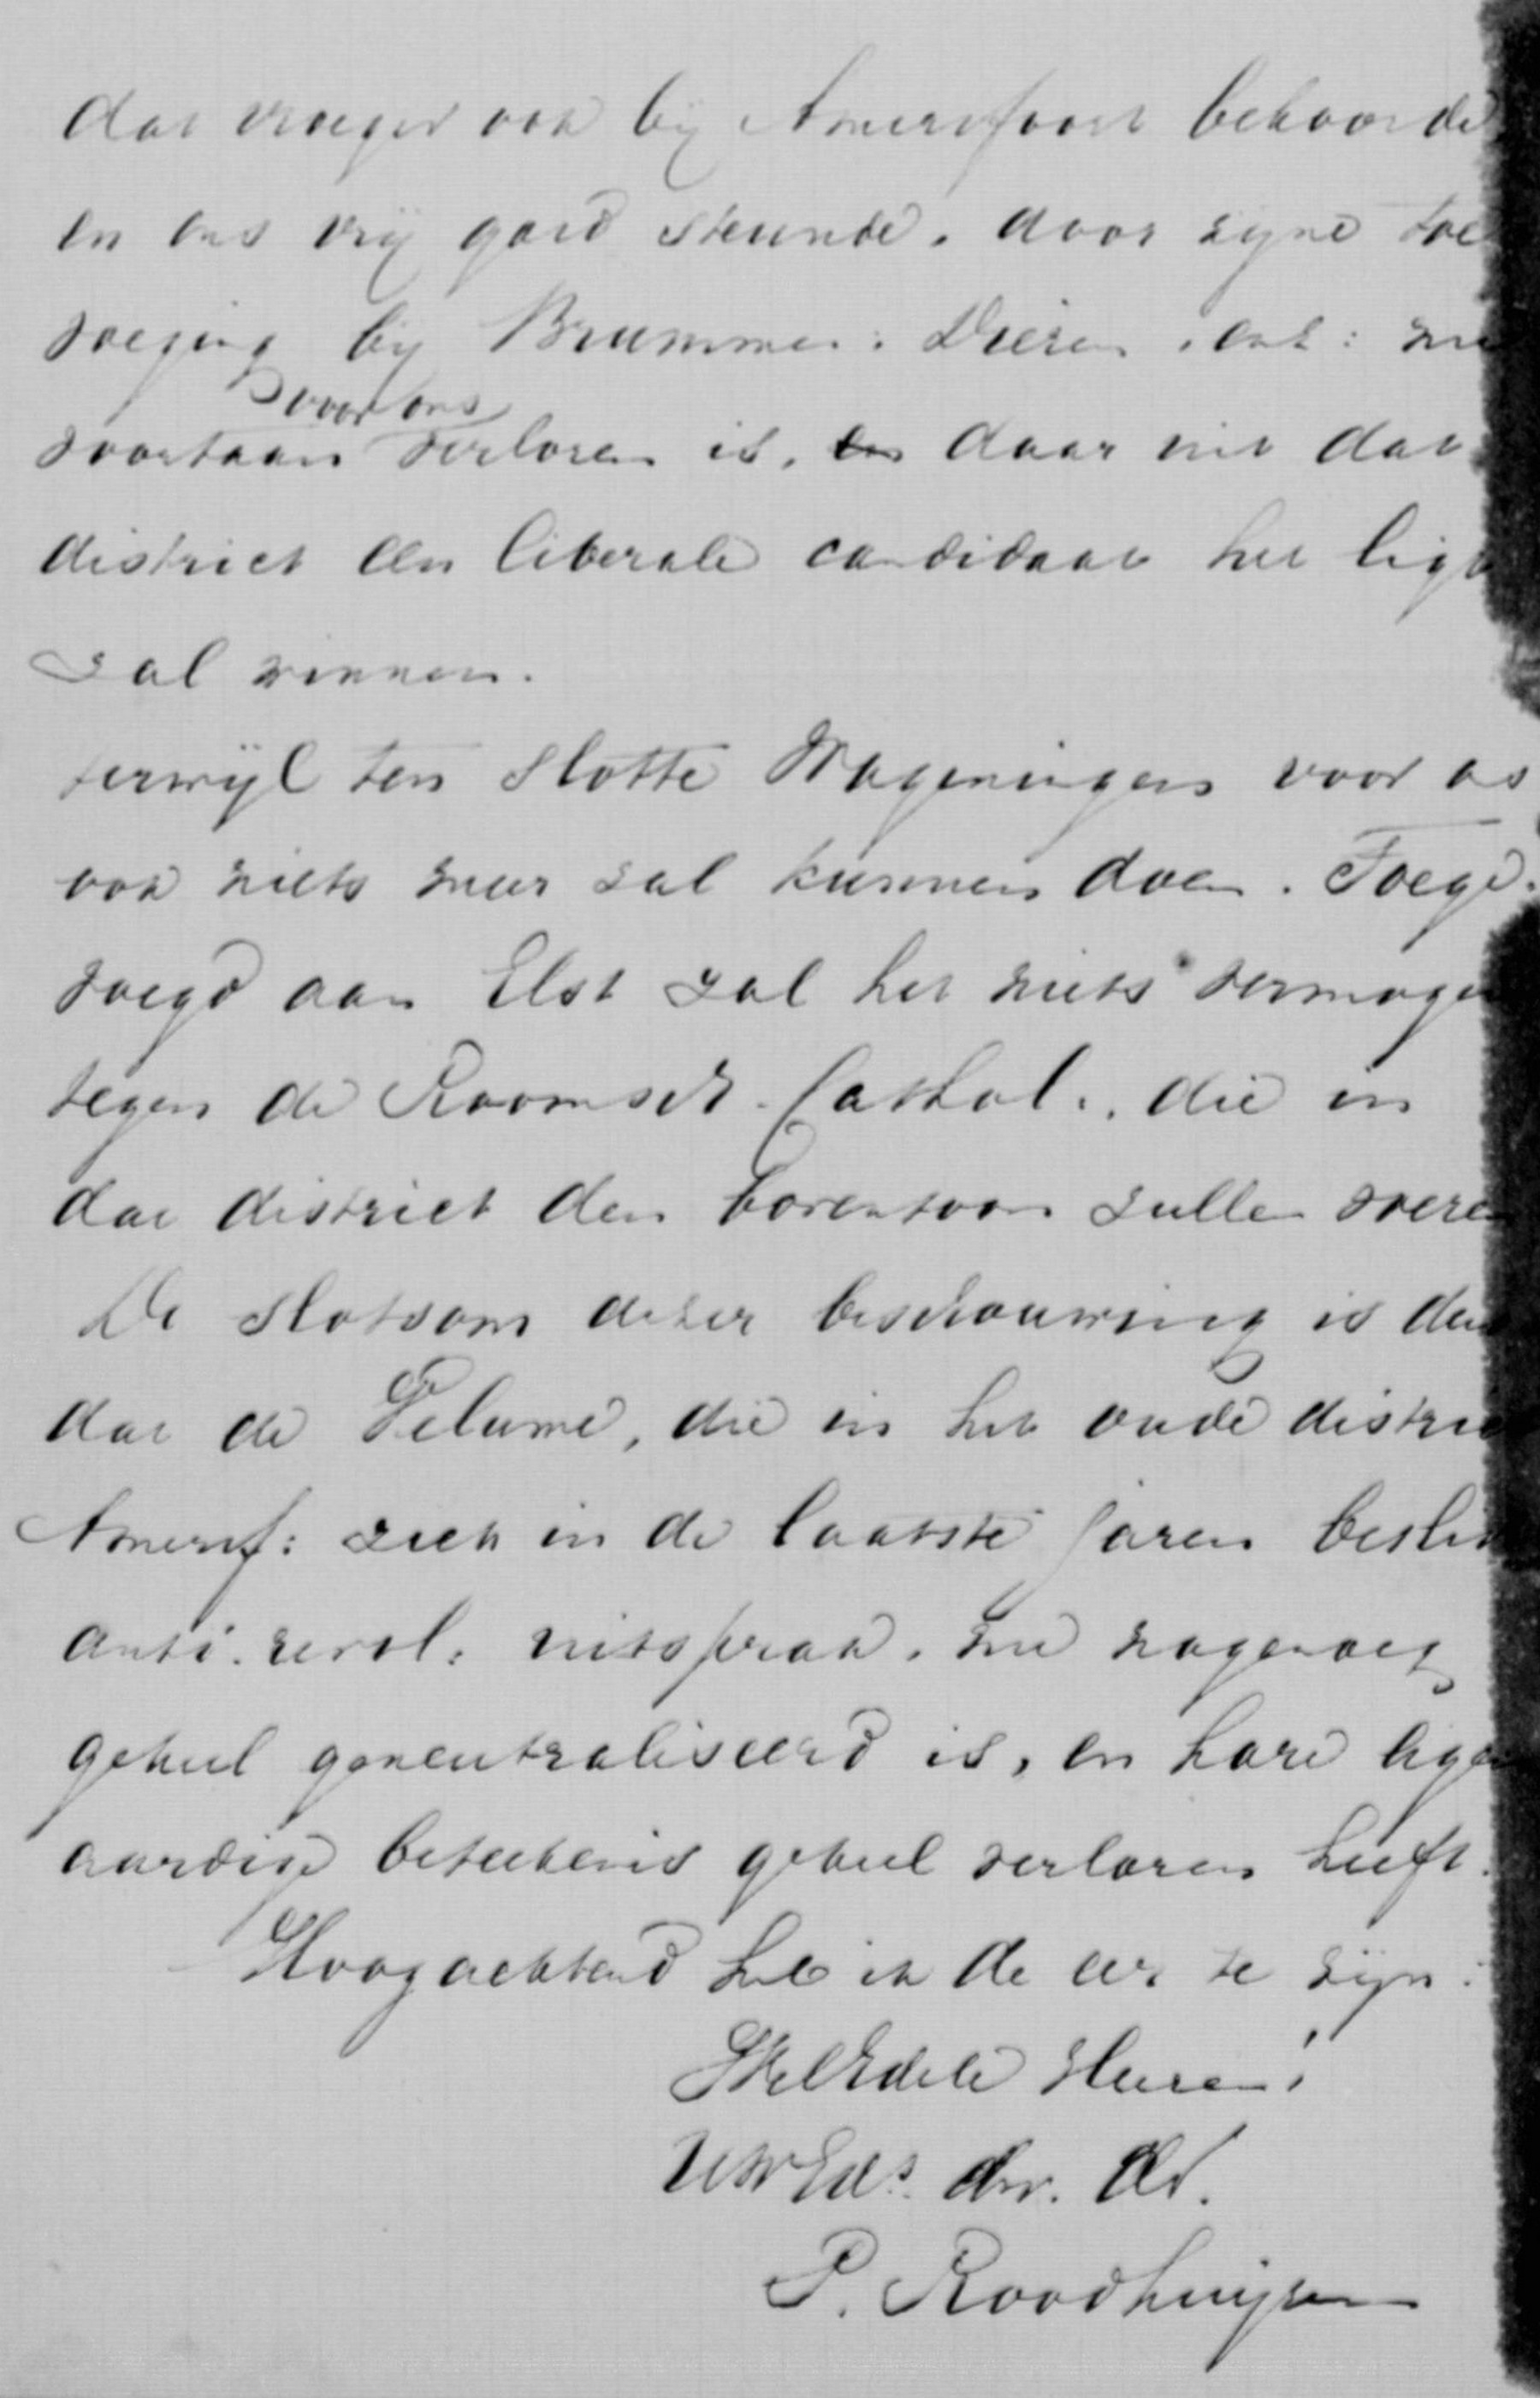 dat vroeger ook bij Amersfoort behoorde
en ons vrij goed steunde, door zijne toe
voeging bij Brummen: Dieren, enz: nu
voortaan voor ons verloren is, daar in dat
district een liberale candidaat het ligt
zal winnen.
terwijl ten slotte Wageningen voor os
ook niets meer zal kunnen doen. Toege-
voegd aan Elst zal het niets vermogen
tegen de Roomsch-Cathol., die in
dat district den boventoon zullen voeren
De slotsom dezer beschouwing is den
dat de Veluwe, die in het oude distric
Amersf: zich in de laatste jaren beslist
anti-revol. uitsprak, nu nagenoeg
geheel geneutraliseerd is, en hare eigen
aardige beteekenis geheel verloren heeft.
Hoogachtend heb ik de eer te zijn:
WelEdele Heeren!
UwEds. dw. dr.
P. Roodhuijzen